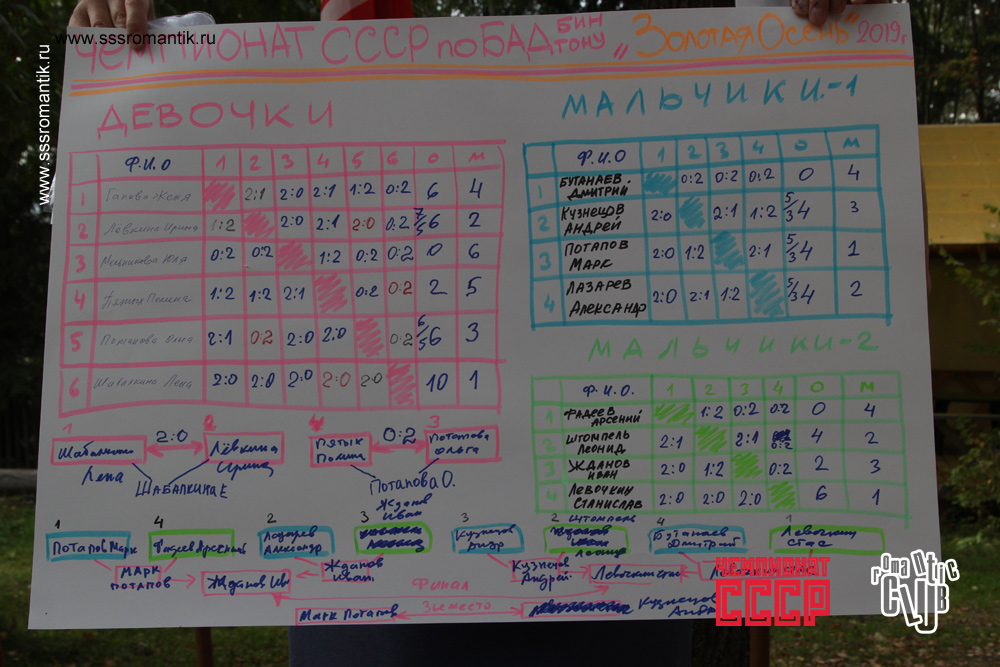 www.sssromantik.ru
www.sssromantik.ru
ЧЕМПИОНАТ СССР по БАДБИНТОНУ „Золотая Осень“ 2019г.
ДЕВОЧКИ
Ф.И.О 1 2 3 4 5 6 О М
1 Женя 2:1 2:0 2:1 1:2 0:2 6 4
2 Левкина Ирина 1:2 2:0 2:1 2:0 0:2 6 2
3 Юля 0:2 0:2 1:2 0:2 0:2 0 6
4 Пятык Полина 1:2 1:2 2:1 0:2 0:2 2 5
5 2:1 0:2 2:0 2:0 0:2 6/5 6 3
6 Шабалкина Лена 2:0 2:0 2:0 2:0 2:0 10 1
МАЛЬЧИКИ-1
Ф.И.О 1 2 3 4 О М
1 БУТАНАЕВ ДМИТРИЙ 0:2 0:2 0:2 0 4
2 КУЗНЕЦОВ АНДРЕЙ 2:0 2:1 1:2 5/3 4 3
3 ПОТАПОВ МАРК 2:0 1:2 2:1 5/3 4 1
4 ЛАЗАРЕВ АЛЕКСАНДР 2:0 2:1 1:2 5/3 4 2
МАЛЬЧИКИ-2
Ф.И.О. 1 2 3 4 О М
1 ФАДЕЕВ АРСЕНИЙ 1:2 0:2 0:2 0 4
2 ШТОМПЕЛЬ ЛЕОНИД 2:1 2:1 0:2 4 2
3 ЖДАНОВ ИВАН 2:0 1:2 0:2 2 3
4 ЛЕВОЧКИН СТАНИСЛАВ 2:0 2:0 2:0 6 1
1 2 4 3
Шабалкина Лена 2:0 Лёвкина Ирина
Пятык Полина 0:2 Потапова Ольга
ШАБАЛКИНА Е
Потапова О.
1 4 2 3 3 2 4 1
Потапов Марк
Фадеев Арсений
Лазарев Александр
Жданов Иван
Кузнецов Андр
Штомпель Леонид
Бутанаев Дмитрий
Левочкин Стас
Марк Потапов
Жданов Ив
Жданов Иван.
Кузнецов Андрей
Левочкин Стас
Левочкин Стас
Финал
Марк Потапов 3 место Кузнецов Андр
ЧЕМПИОНАТ
СССР
romantic
CLUB